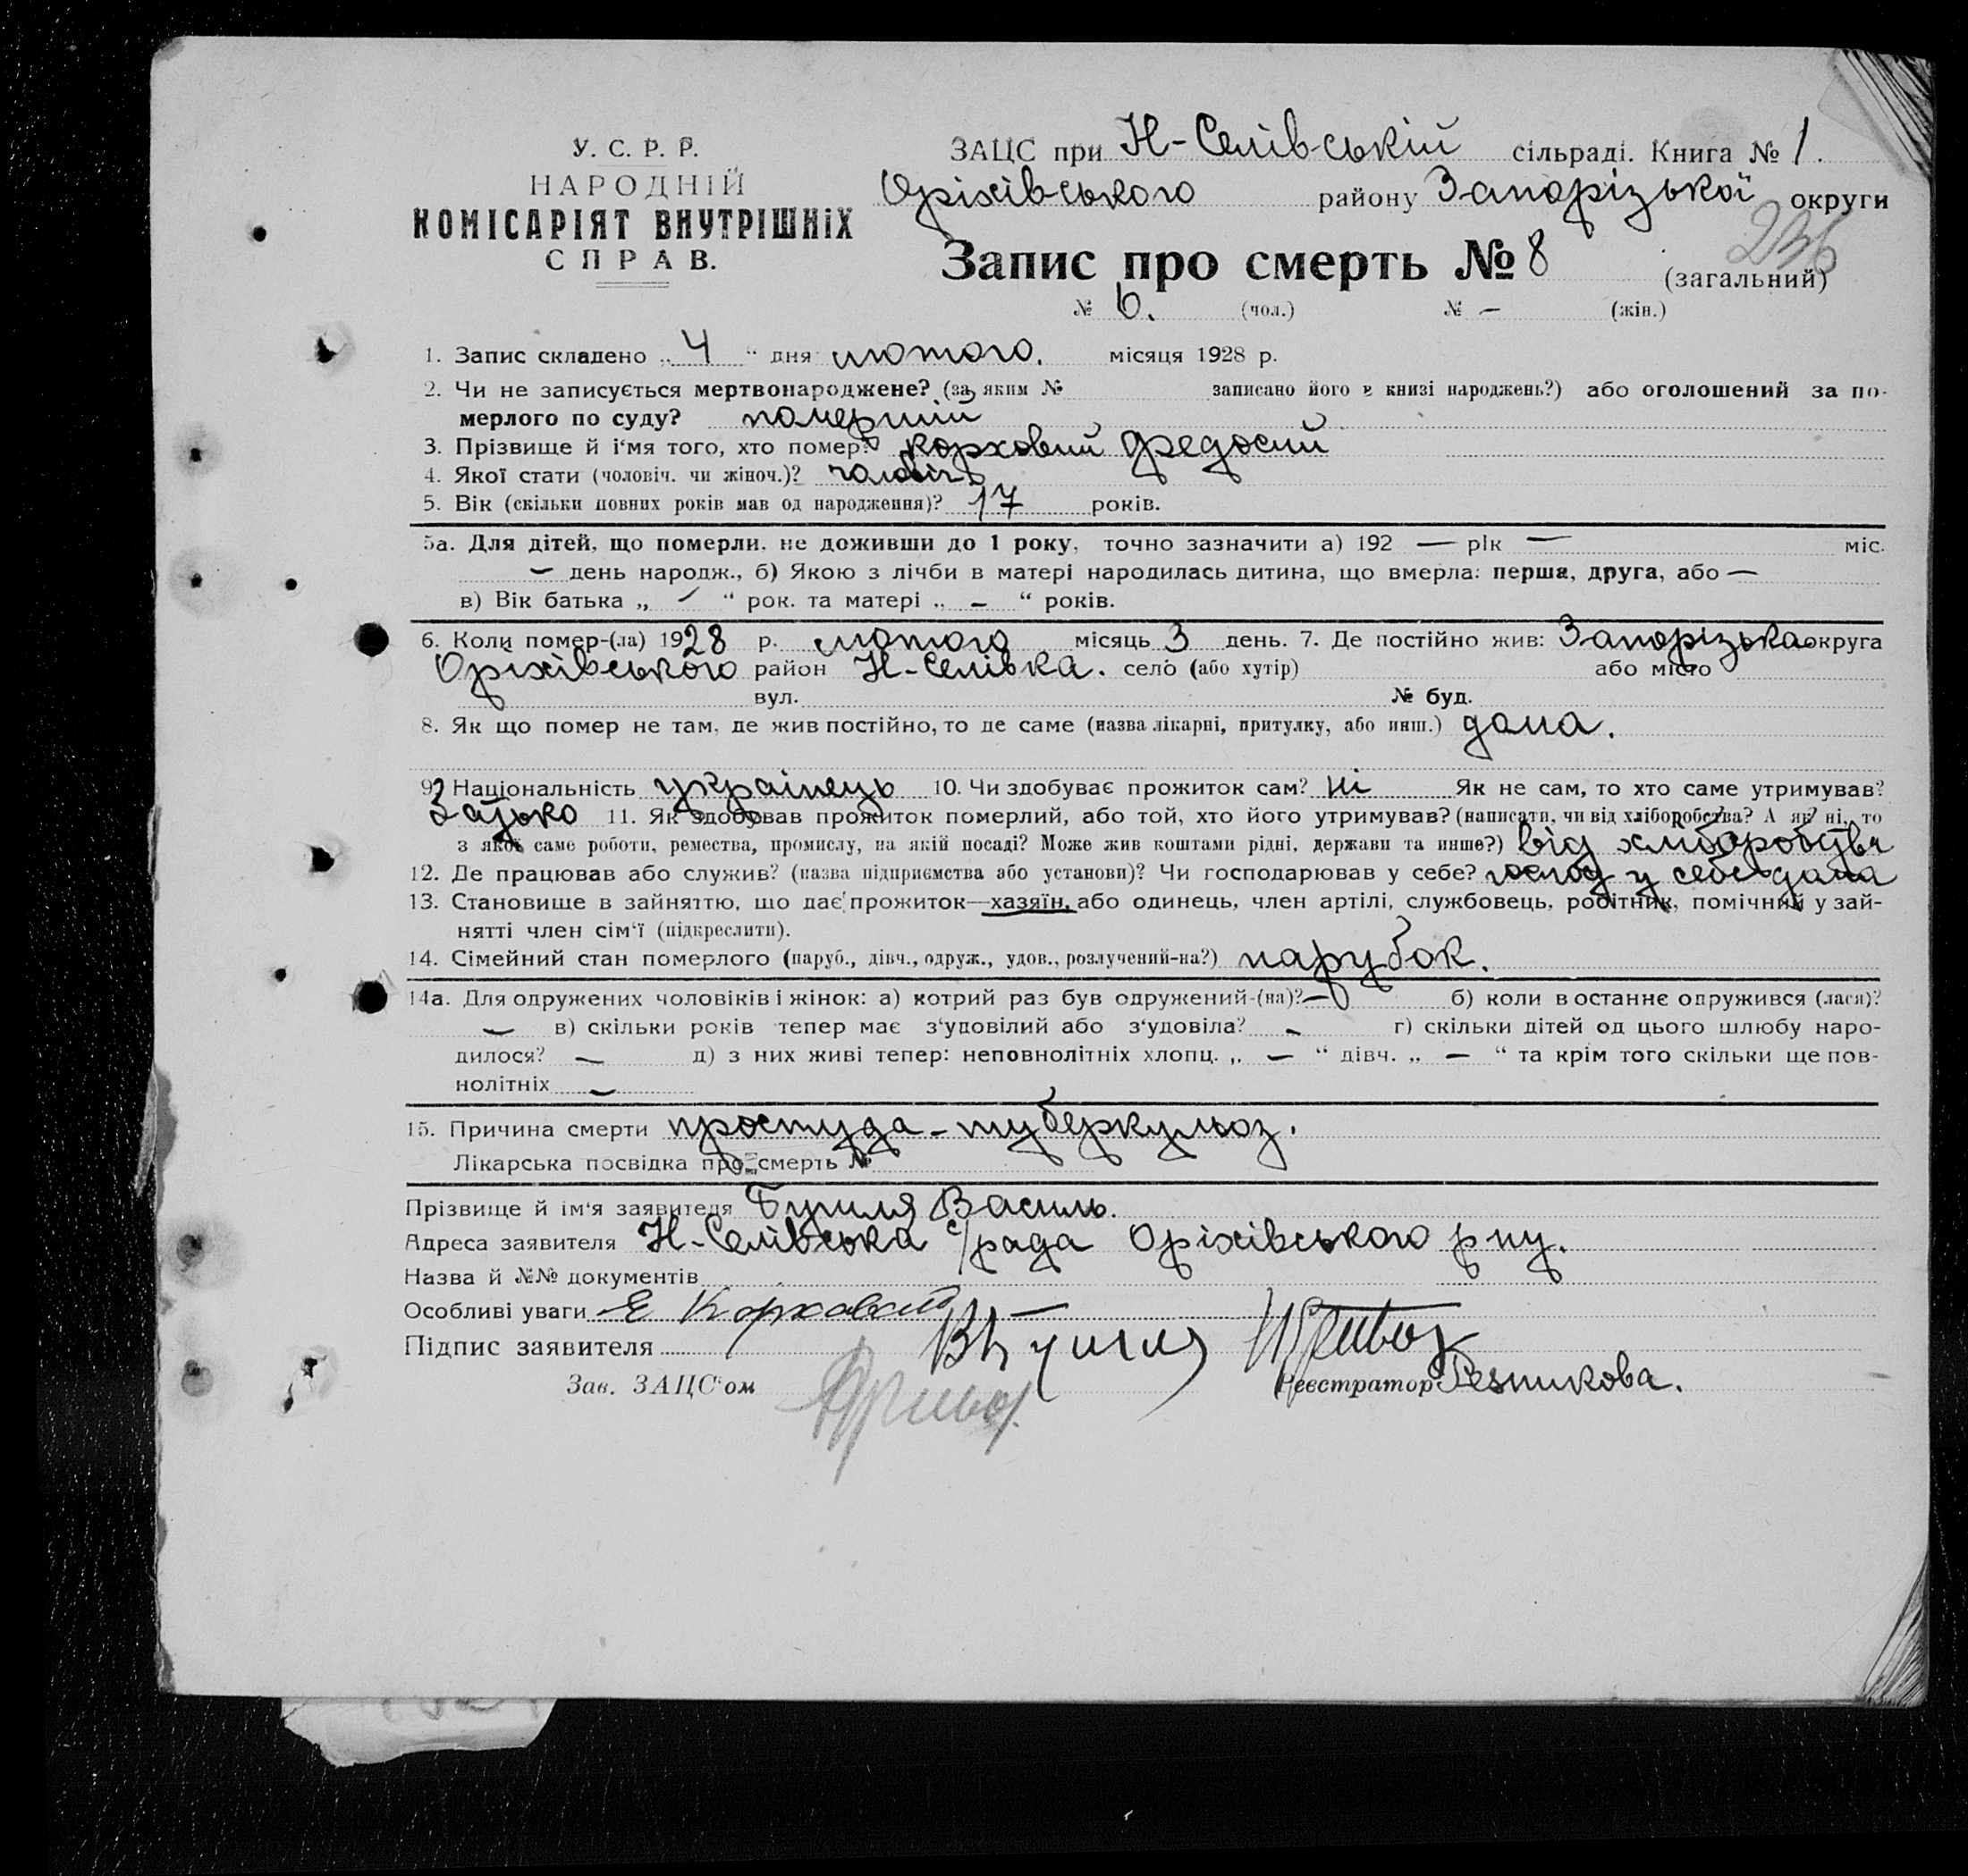 У. С. Р. Р.
НАРОДНІЙ
КОМІСАРІЯТ ВНУТРІШНІХ
СПРАВ.
ЗАЦС при Н-Селівській сільраді. Книга № 1.
Оріхівського району Запорізької округи
236
Запис про смерть № 8 (загальний)
№ 6. (чол.) № – (жін.)
1. Запис складено „ 4 “ дня лютого. місяця 1928 р.
2. Чи не записується мертвонароджене? (за яким № записано його в книзі народжень?) або оголошений за по-
мерлого по суду? померший
3. Прізвище й і‘мя того, хто помер? Корховий Федосий
4. Якої стати (чоловіч. чи жіноч.)? чоловіч.
5. Вік (скільки повних років мав од народження)? 17 років.
5а. Для дітей, що померли, не доживши до 1 року, точно зазначити а) 192 — рік — міс.
– день народж., б) Якою з лічби в матері народилась дитина, що вмерла: перша, друга, або —
в) Вік батька „ – “ рок. та матері „ – “ років.
6. Коли помер-(ла) 1928 р. лютого місяць 3 день. 7. Де постійно жив: Запорізька округа
Оріхівського район Н-Селівка. село (або хутір) або місто
вул. № буд.
8. Як що помер не там, де жив постійно, то де саме (назва лікарні, притулку, або инш.) дома.
9. Національність українець 10. Чи здобуває прожиток сам? ні Як не сам, то хто саме утримував?
11. Як здобував прожиток померлий, або той, хто його утримував? (написати, чи від хліборобства? А як ні, то
з якої саме роботи, ремества, промислу, на якій посаді? Може жив коштами рідні, держави та инше?) від хліборобства
12. Де працював або служив? (назва підприємства або установи)? Чи господарював у себе? у себе дома
13. Становище в зайняттю, що дає прожиток—хазяїн, або одинець, член артілі, службовець, робітник, помічний у зай-
нятті член сім‘ї (підкреслити).
14. Сімейний стан померлого (паруб., дівч., одруж., удов., розлучений-на?) парубок.
14а. Для одружених чоловіків і жінок: а) котрий раз був одружений-(на)? — б) коли в останнє одружився (лася)?
– в) скільки років тепер має з‘удовілий або з‘удовіла? – г) скільки дітей од цього шлюбу наро-
дилося? — д) з них живі тепер: неповнолітніх хлопц. „ – “ дівч. „ – “ та крім того скільки ще пов-
нолітніх –
15. Причина смерти простуда - туберкульоз.
Лікарська посвідка про смерть №
Прізвище й ім‘я заявителя Василь.
Адреса заявителя Н-Селівська с/рада Оріхівського р ну.
Назва й №№ документів
Особливі уваги Е Корховой —
Підпис заявителя
Зав. ЗАЦС‘ом Реєстратор Резникова.